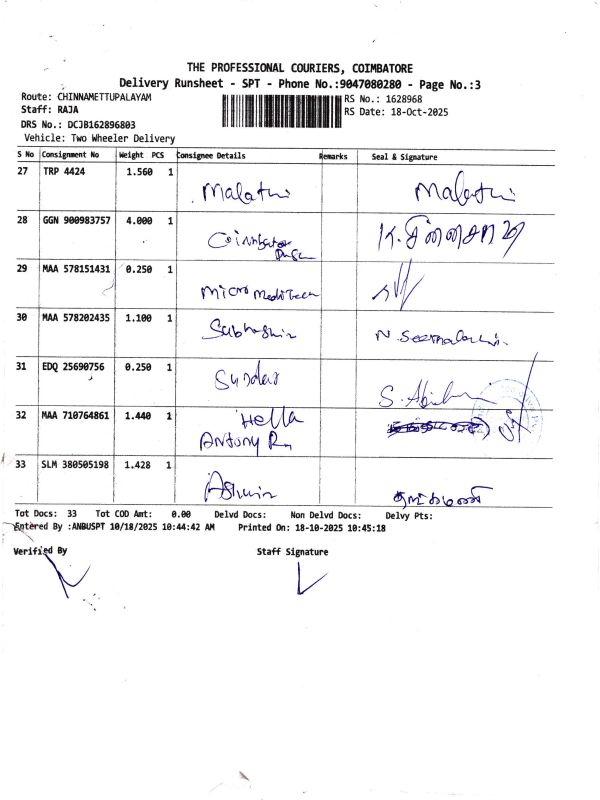 THE PROFESSIONAL COURIERS, COIMBATORE
Delivery Runsheet - SPT - Phone No.:9047080280 - Page No.:3
Route: CHINNAMETTUPALAYAM RS No.: 1628968
Staff: RAJA RS Date: 18-Oct-2025
DRS No.: DCJB162896803
Vehicle: Two Wheeler Delivery
S No Consignment No Weight PCS Consignee Details Remarks Seal & Signature
27 TRP 4424 1.560 1 Malathi Malathi
28 GGN 900983757 4.000 1 Coimbator
29 MAA 578151431 0.250 1 Micro Meditech
30 MAA 578202435 1.100 1 Subhashin N. Seethalakshmi
31 EDQ 25690756 0.250 1 Sundar
32 MAA 710764861 1.440 1 Hella
Antony
33 SLM 380505198 1.428 1 Ashwin தங்கமணி
Tot Docs: 33 Tot COD Amt: 0.00 Delvd Docs: Non Delvd Docs: Delvy Pts:
Entered By :ANBUSPT 10/18/2025 10:44:42 AM Printed On: 18-10-2025 10:45:18
Verified By Staff Signature